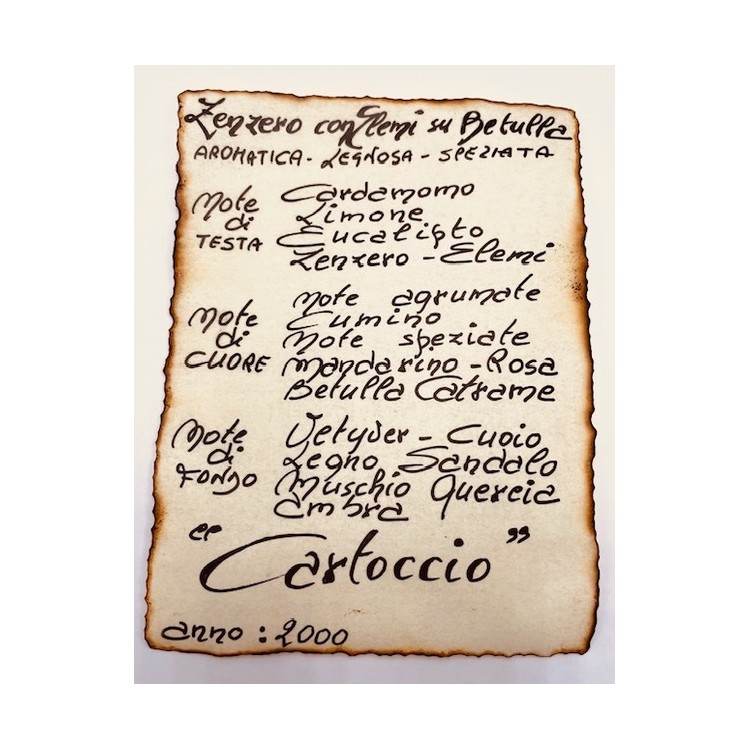 Zenzero con Elemi su Betulla
AROMATICA - LEGNOSA - SPEZIATA
Note di TESTA
Cardamomo
Limone
Eucalipto
Zenzero - Elemi
Note di CUORE
Note agrumate
Cumino
Note speziate
Mandarino - Rosa
Betulla Catrame
Note di FONDO
Vetyver - Cuoio
Legno Sandalo
Muschio Quercia
Ambra
"Cartoccio"
anno: 2000